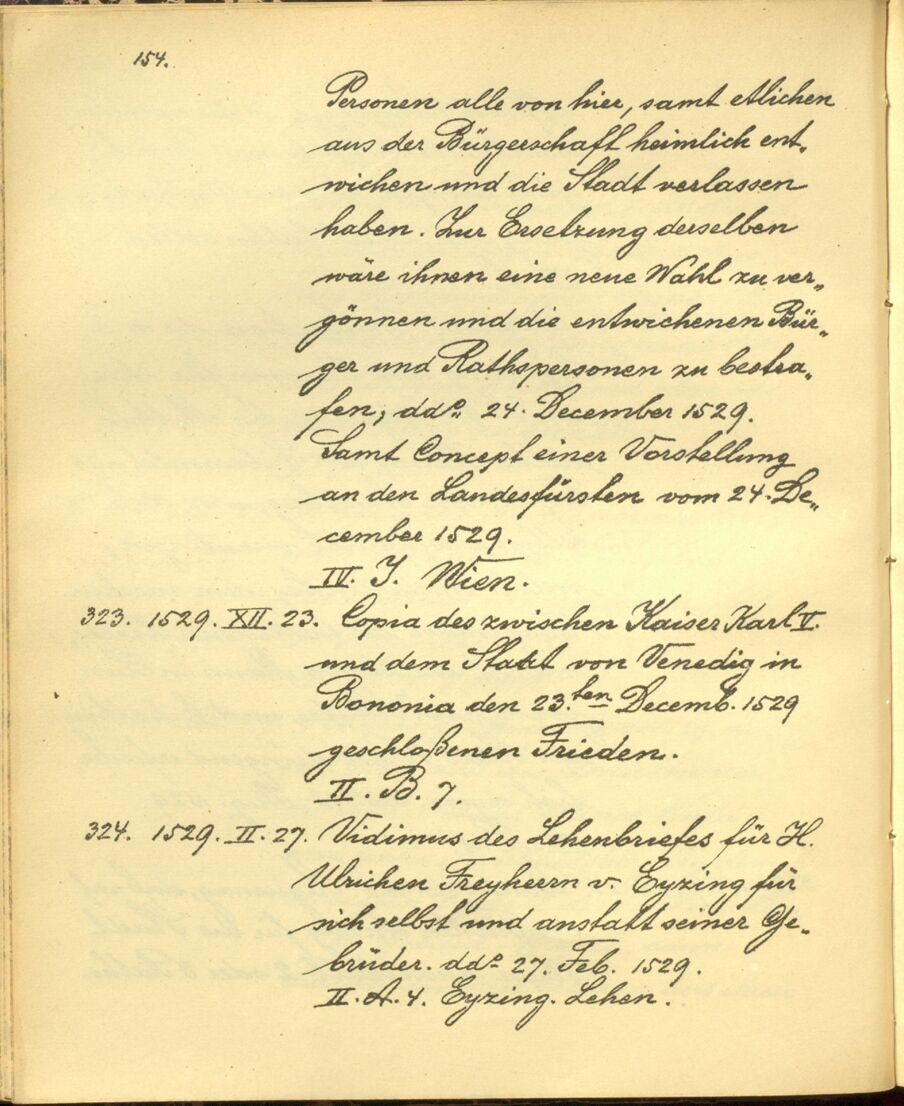 154.
Personen alle von hier, samt etlichen
aus der Bürgerschaft heimlich ent„
wichen und die Stadt verlassen
haben. Zur Ersetzung derselben
wäre ihnen eine neue Wahl zu ver„
gönnen und die entwichenen Bür„
ger und Rathspersonen zu bestra„
fen, ddo. 24. December 1529.
Samt Concept einer Vorstellung
an den Landesfürsten vom 24. De„
cember 1529.
IV. J. Wien.
323. 1529. XII. 23. Copia des zwischen Kaiser Karl V.
und dem Staat von Venedig in
Bononia den 23.ten Decemb. 1529
geschloßenen Frieden.
II. B. 7.
324. 1529. II. 27. Vidimus des Lehenbriefes für H.
Ulrichen Freyherrn v. Eyzing für
sich selbst und anstatt seiner Ge„
brüder. ddo 27. Feb. 1529.
II. A. 4. Eyzing. Lehen.